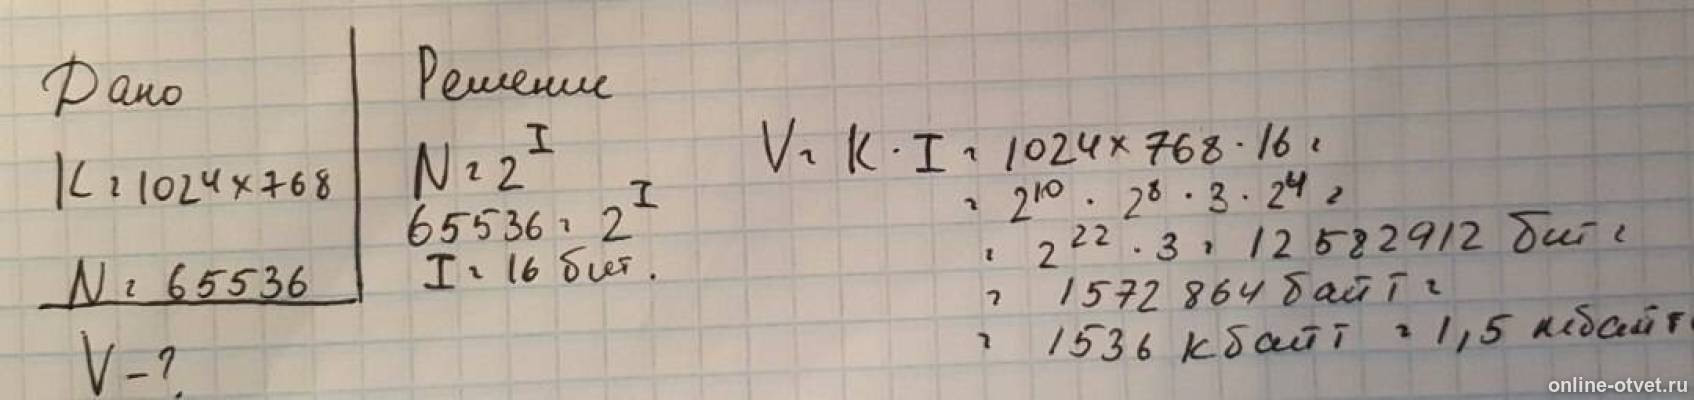 Дано
K = 1024 x 768
N = 65536
V - ?
Решение
N = 2^I
65536 = 2^I
I = 16 бит.
V = K · I = 1024 x 768 · 16 =
= 2^10 · 2^8 · 3 · 2^4 =
= 2^22 · 3 = 12582912 бит =
= 1572864 байт =
= 1536 кбайт = 1,5 мбайт
online-otvet.ru